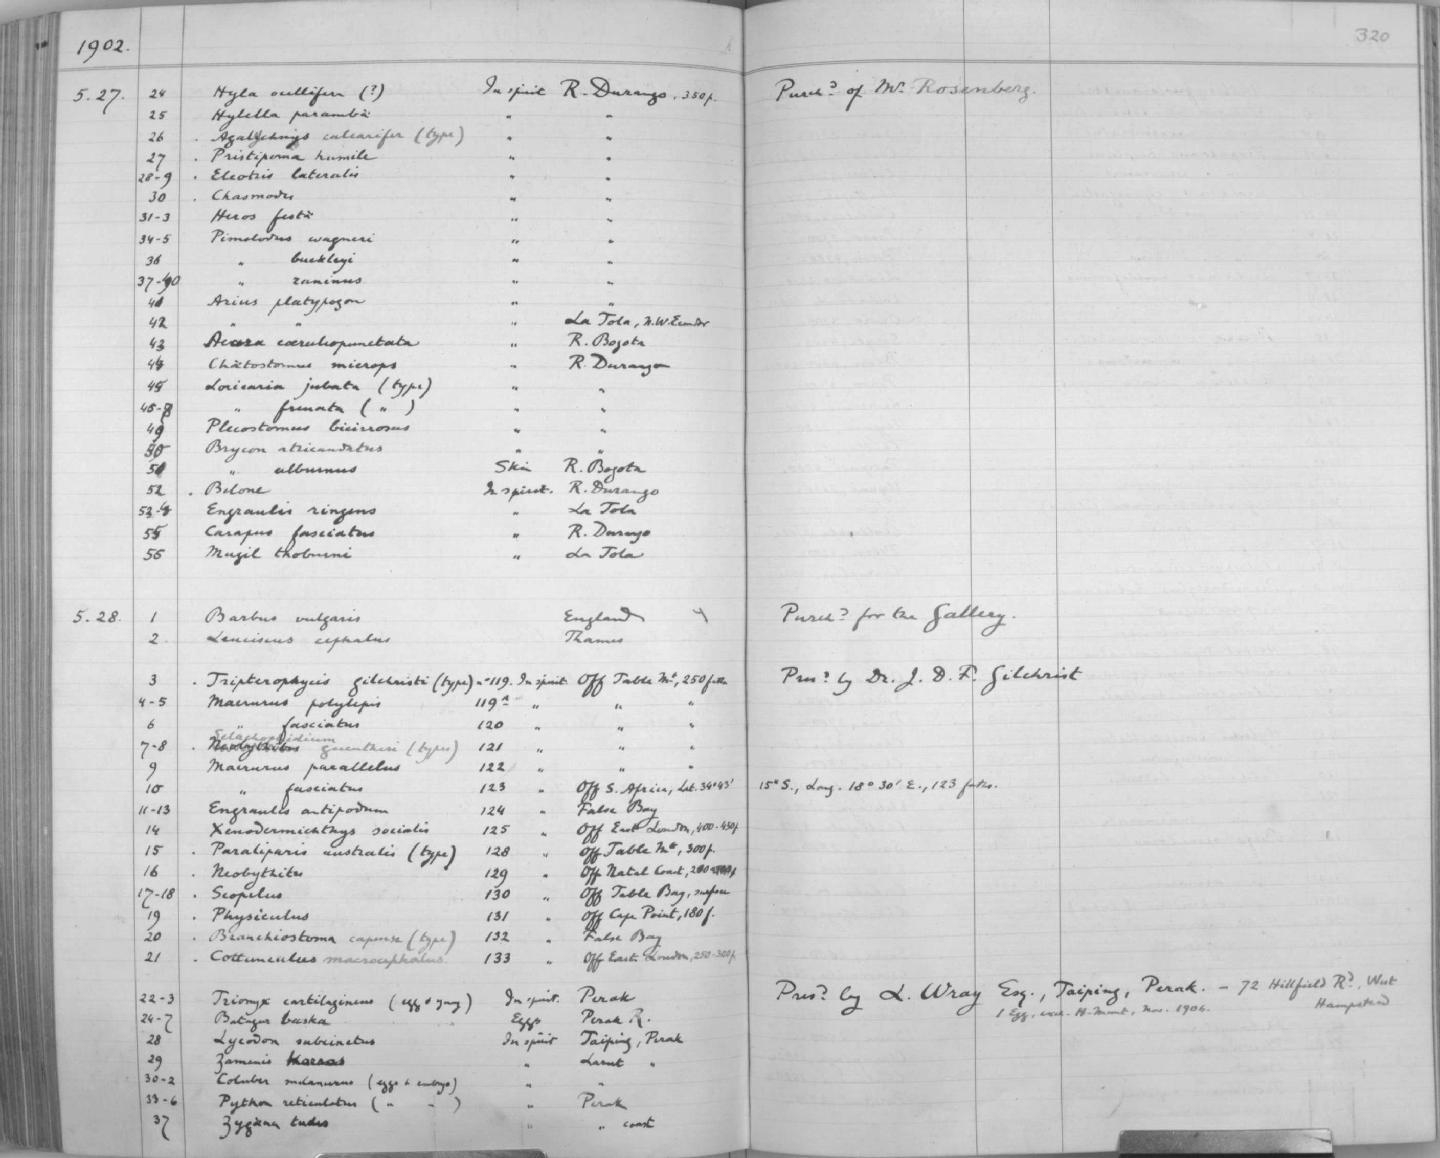 1902.
320
5.27. 24 Hyla ocellifera (?) In spirit R. Durango, 350 f. Purchd of Mr Rosenberg.
25 Hylella parambæ " "
26 . Agalychnis calcarifer (type) " "
27 . Pristipoma humile " "
28-9 . Eleotris lateralis " "
30 . Chasmodes " "
31-3 Heros festæ " "
34-5 Pimelodus wagneri " "
36 " buckleyi " "
37-40 " raninus " "
41 Arius platypogon " "
42 " " " La Tola, N.W. Ecuador
43 Acara cœruleopunctata " R. Bogota
44 Chætostomus microps " R. Durango
45 Loricaria jubata (type) " "
46-8 " frenata ( " ) " "
49 Plecostomus bicirrosus " "
50 Brycon atricaudatus " "
51 " alburnus Skin R. Bogota
52 . Belone In spirit. R. Durango
53-4 Engraulis ringens " La Tola
55 Carapus fasciatus " R. Durango
56 Mugil thoburni " La Tola
5.28. 1 Barbus vulgaris England Purchd for the Gallery.
2 Leuciscus cephalus Thames
3 . Tripterophycis gilchristi (type) no 119. In spirit Off Table Mt, 250 fath Presd by Dr. J. D. F. Gilchrist
4-5 Macrurus polylepis 119A " " "
6 " fasciatus 120 " " "
Selachophidium
7-8 . Neobythites guentheri (types) 121 " " "
9 Macrurus parallelus 122 " " "
10 " fasciatus 123 " Off S. Africa, Lat. 34° 43' 15" S., Long. 18° 30' E., 123 faths.
11-13 Engraulis antipodum 124 " False Bay
14 Xenodermichthys socialis 125 " Off East London, 400-450 f.
15 . Paraliparis australis (type) 128 " Off Table Mt, 300 f.
16 . Neobythites 129 " Off Natal Coast,
17-18 . Scopelus 130 " Off Table Bay, surface
19 . Physiculus 131 " Off Cape Point, 180 f.
20 . Branchiostoma capense (type) 132 " False Bay
21 . Cottunculus macrocephalus 133 " Off East London, 250-300 f.
22-3 Trionyx cartilagineus (egg & yng) In spirit. Perak Presd by L. Wray Esq., Taiping, Perak. - 72 Hillfield Rd, West Hampstead
24-7 Batagur baska Eggs Perak R. 1 Egg, Nov. 1906.
28 Lycodon subcinctus In spirit Taiping, Perak
29 Zamenis korros " Larut "
30-2 Coluber melanurus (eggs & embryo) " "
33-6 Python reticulatus ( " " ) " Perak
37 Zygæna tudes " " coast